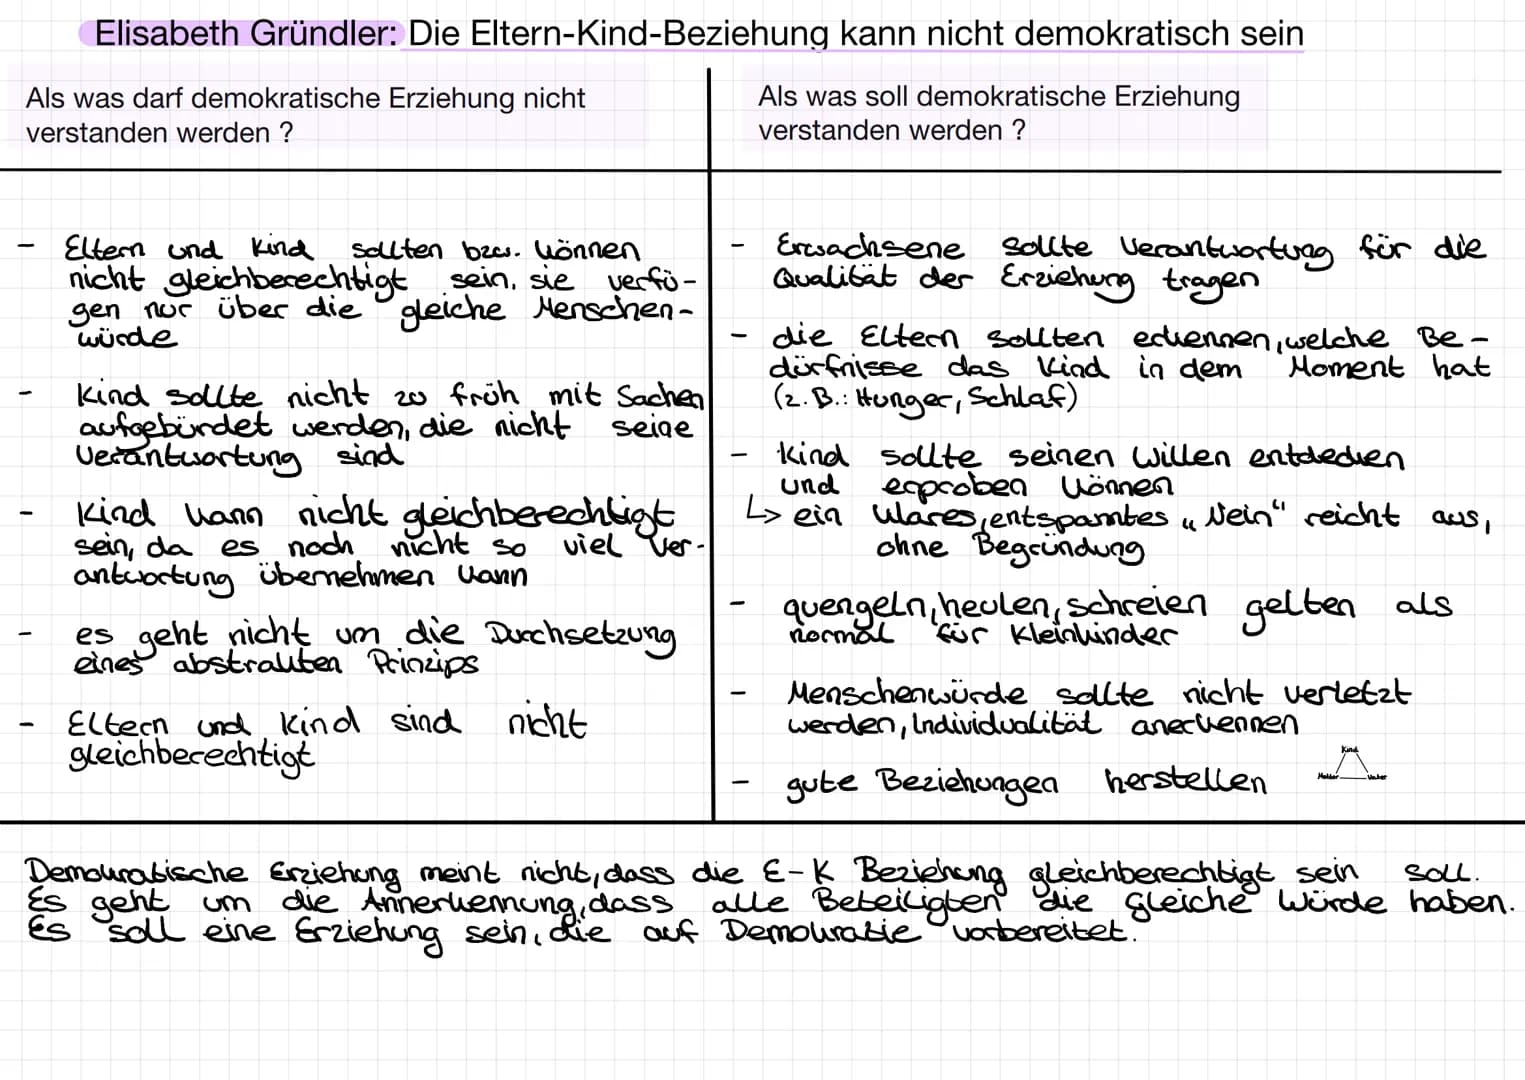 Elisabeth Gründler: Die Eltern-Kind-Beziehung kann nicht demokratisch sein
Als was darf demokratische Erziehung nicht
verstanden werden ?
- Eltern und Kind sollten bzw. können
nicht gleichberechtigt sein, sie verfü-
gen nur über die gleiche Menschen-
würde
- Kind sollte nicht zu früh mit Sachen
aufgebürdet werden, die nicht seine
Verantwortung sind
- Kind kann nicht gleichberechtigt
sein, da es noch nicht so viel Ver-
antwortung übernehmen kann
- es geht nicht um die Durchsetzung
eines abstrakten Prinzips
- Eltern und Kind sind nicht
gleichberechtigt
Als was soll demokratische Erziehung
verstanden werden ?
- Erwachsene sollte Verantwortung für die
Qualität der Erziehung tragen
- die Eltern sollten erkennen, welche Be-
dürfnisse das Kind in dem Moment hat
(z.B.: Hunger, Schlaf)
- Kind sollte seinen Willen entdecken
und erproben können
↳ ein klares, entspanntes „Nein“ reicht aus,
ohne Begründung
- quengeln, heulen, schreien gelten als
normal für Kleinkinder
- Menschenwürde sollte nicht verletzt
werden, Individualität anerkennen
- gute Beziehungen herstellen
Kind
Mutter Vater
Demokratische Erziehung meint nicht, dass die E-K Beziehung gleichberechtigt sein soll.
Es geht um die Annerkennung, dass alle Beteiligten die gleiche Würde haben.
Es soll eine Erziehung sein, die auf Demokratie vorbereitet.